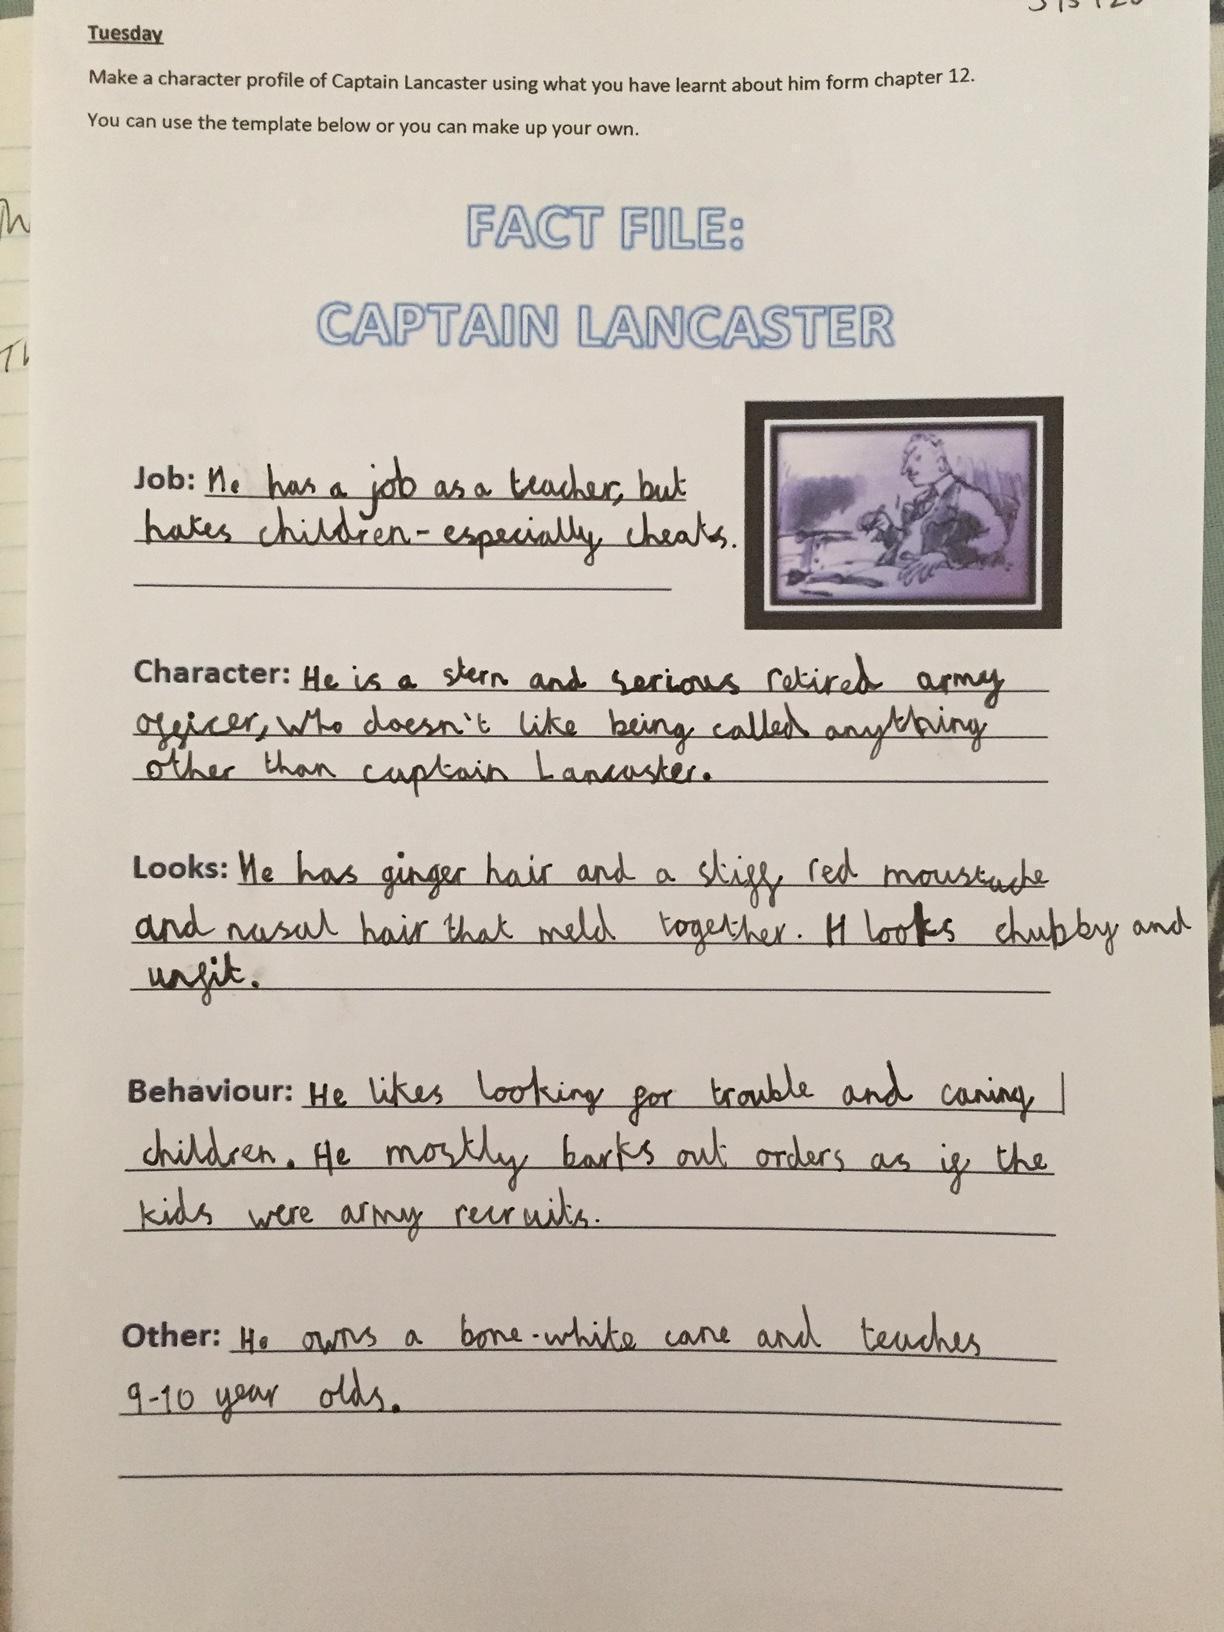 Tuesday
Make a character profile of Captain Lancaster using what you have learnt about him form chapter 12.
You can use the template below or you can make up your own.
FACT FILE:
CAPTAIN LANCASTER
Job: He has a job as a teacher, but
hates children - especially cheats.
Character: He is a stern and serious retired army
officer, who doesn't like being called anything
other than captain Lancaster.
Looks: He has ginger hair and a stiff red moustache
and nasal hair that meld together. H looks chubby and
unfit.
Behaviour: He likes looking for trouble and caning
children. He mostly barks out orders as if the
kids were army recruits.
Other: He owns a bone-white cane and teaches
9-10 year olds.